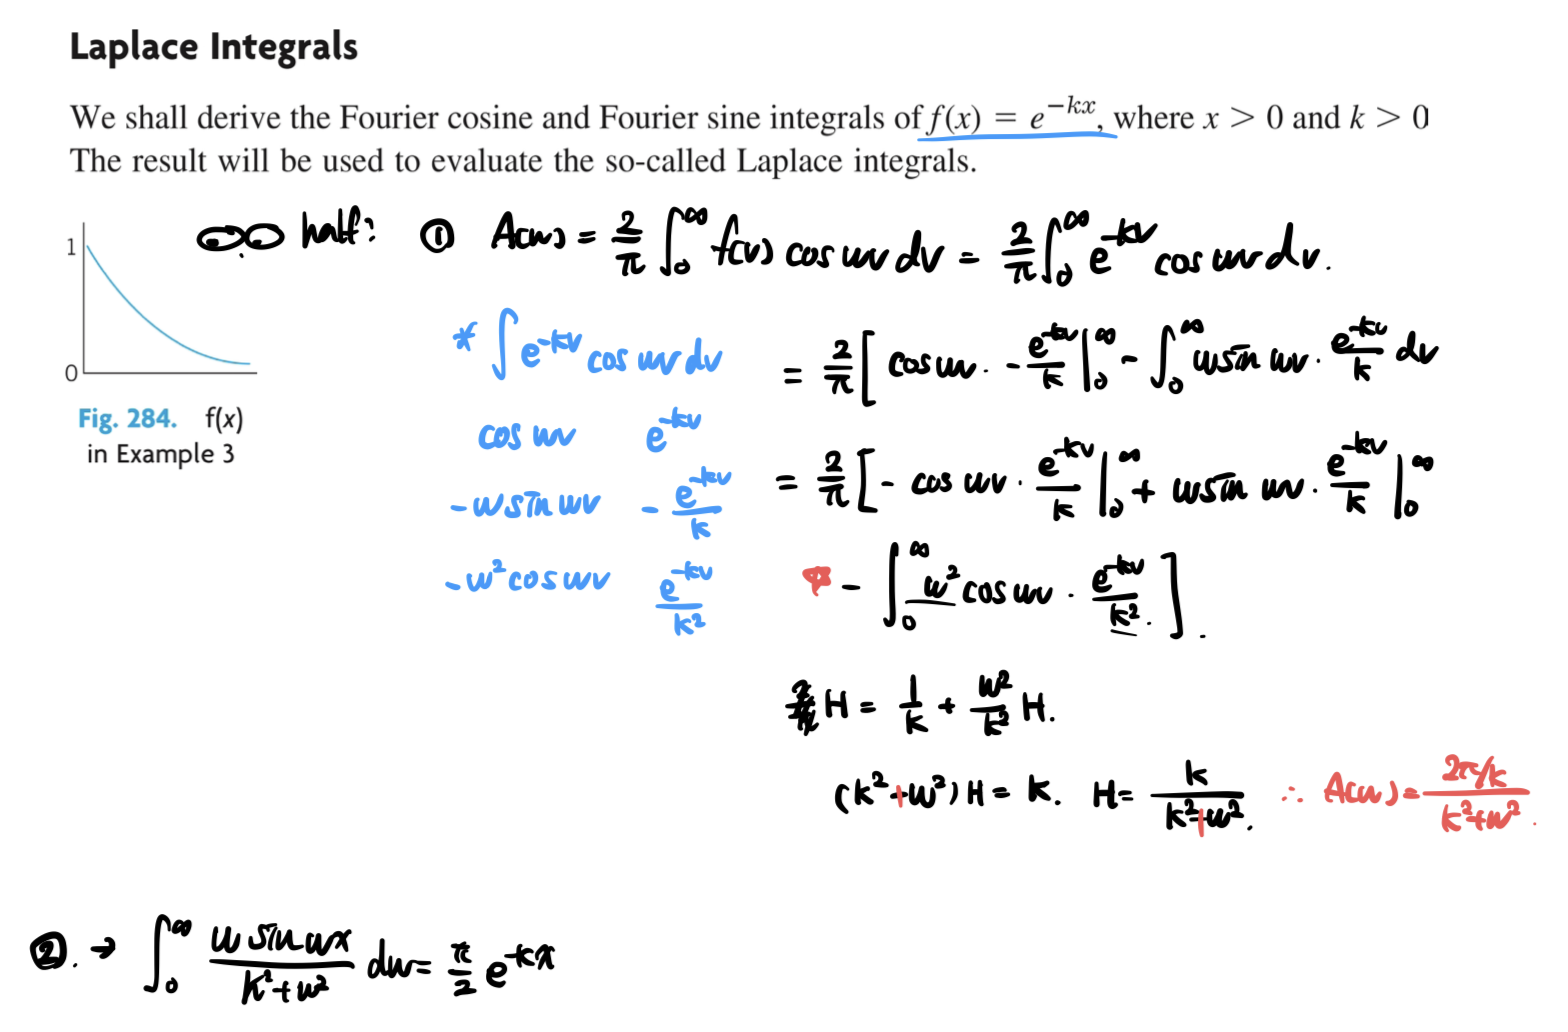 Laplace Integrals
We shall derive the Fourier cosine and Fourier sine integrals of f(x) = e^{-kx}, where x > 0 and k > 0
The result will be used to evaluate the so-called Laplace integrals.
1
0
Fig. 284. f(x)
in Example 3
∞ half? ① A(w) = 2/π ∫_0^∞ f(v) cos wv dv = 2/π ∫_0^∞ e^{-kv} cos wv dv.
* ∫ e^{-kv} cos wv dv
cos wv e^{-kv}
-w sin wv - e^{-kv}/k
-w² cos wv e^{-kv}/k²
= 2/π [ cos wv · - e^{-kv}/k |_0^∞ - ∫_0^∞ w sin wv · e^{-kv}/k dv
= 2/π [ - cos wv · e^{-kv}/k |_0^∞ + w sin wv · e^{-kv}/k |_0^∞
- ∫_0^∞ w² cos wv · e^{-kv}/k² . ] .
H = 1/k + w²/k² H.
(k²+w²) H = k. H = k/(k²+w²). ∴ A(w) = (2π/k)/(k²+w²).
②. → ∫_0^∞ (w sin wx)/(k²+w²) dw = π/2 e^{-kx}